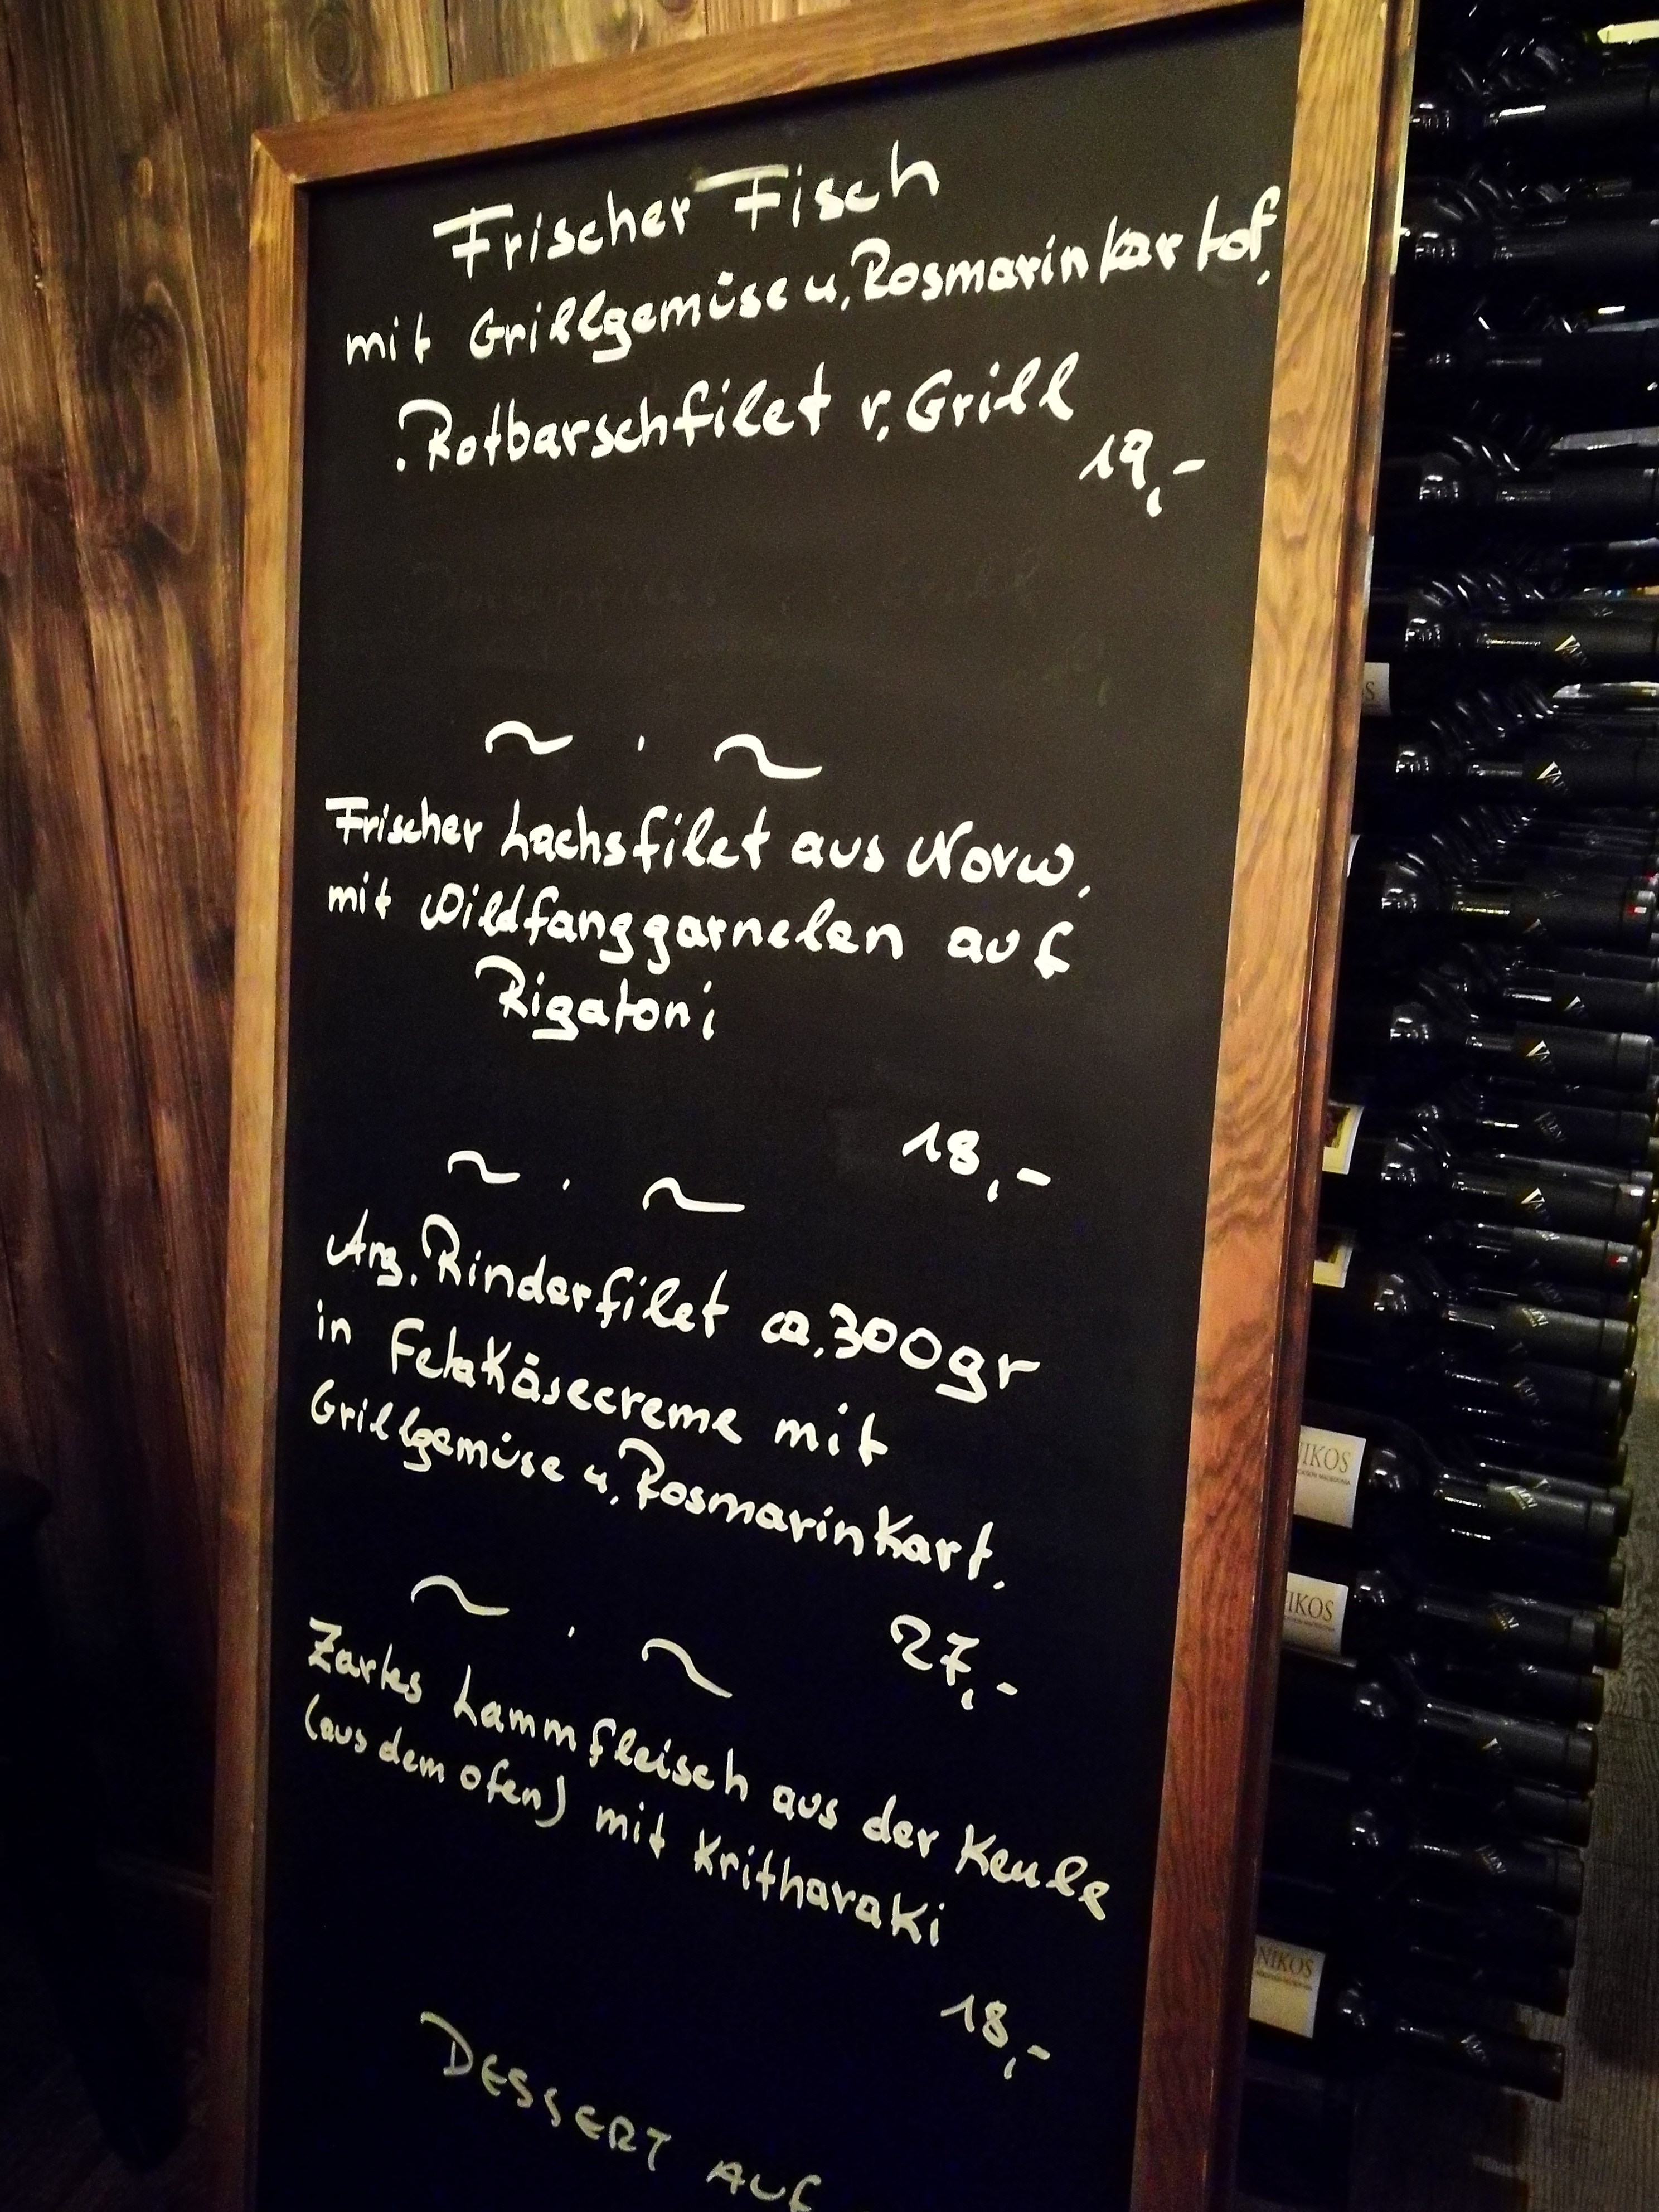 Frischer Fisch
mit Grillgemüse u. Rosmarinkartof.
. Rotbarschfilet v. Grill
19,-
~ . ~
Frischer Lachsfilet aus Norw.
mit Wildfanggarnelen auf
Rigatoni
18,-
~ . ~
Arg. Rinderfilet ca. 300gr
in Fetakäsecreme mit
Grillgemüse u. Rosmarinkart.
27,-
~ . ~
Zartes Lammfleisch aus der Keule
(aus dem ofen) mit Kritharaki
18,-
DESSERT AUF
IKOS
IKOS
NIKOS